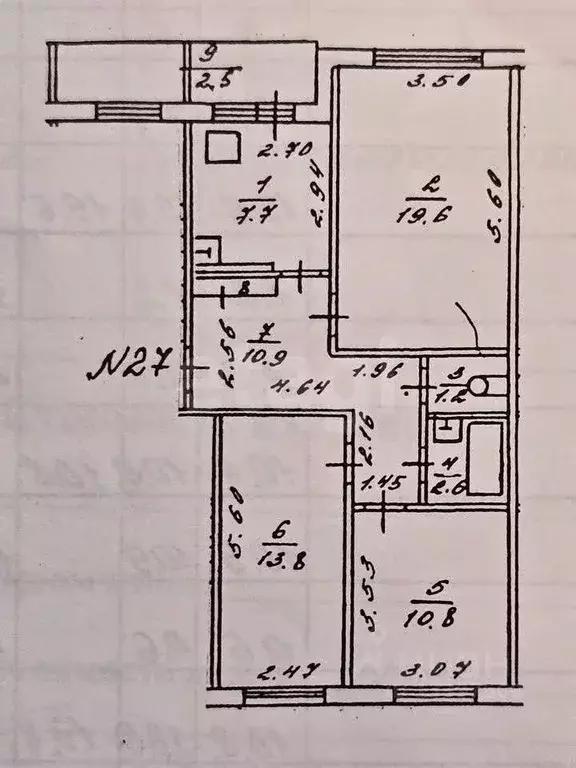 9
2,5
3.50
2.70
1
7.7
2.94
2
19.6
5.60
8
7
10.9
2.56
N27
4.64
1.96
3
1.2
2.16
4
2.6
1.45
5.60
6
13.8
3.53
5
10.8
2.47
3.07